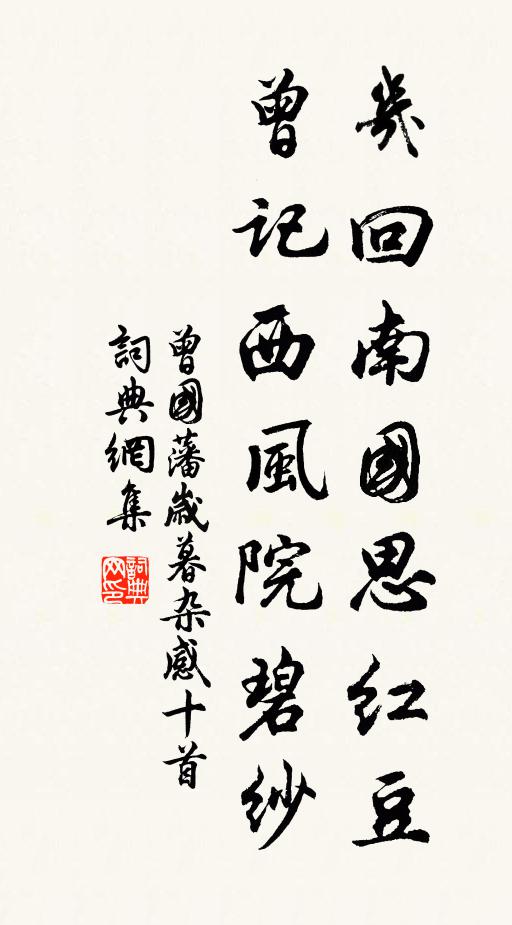 幾回南國思紅豆
曾記西風院碧紗
曾國藩歲暮杂感十首
詞典網集
詞典网印